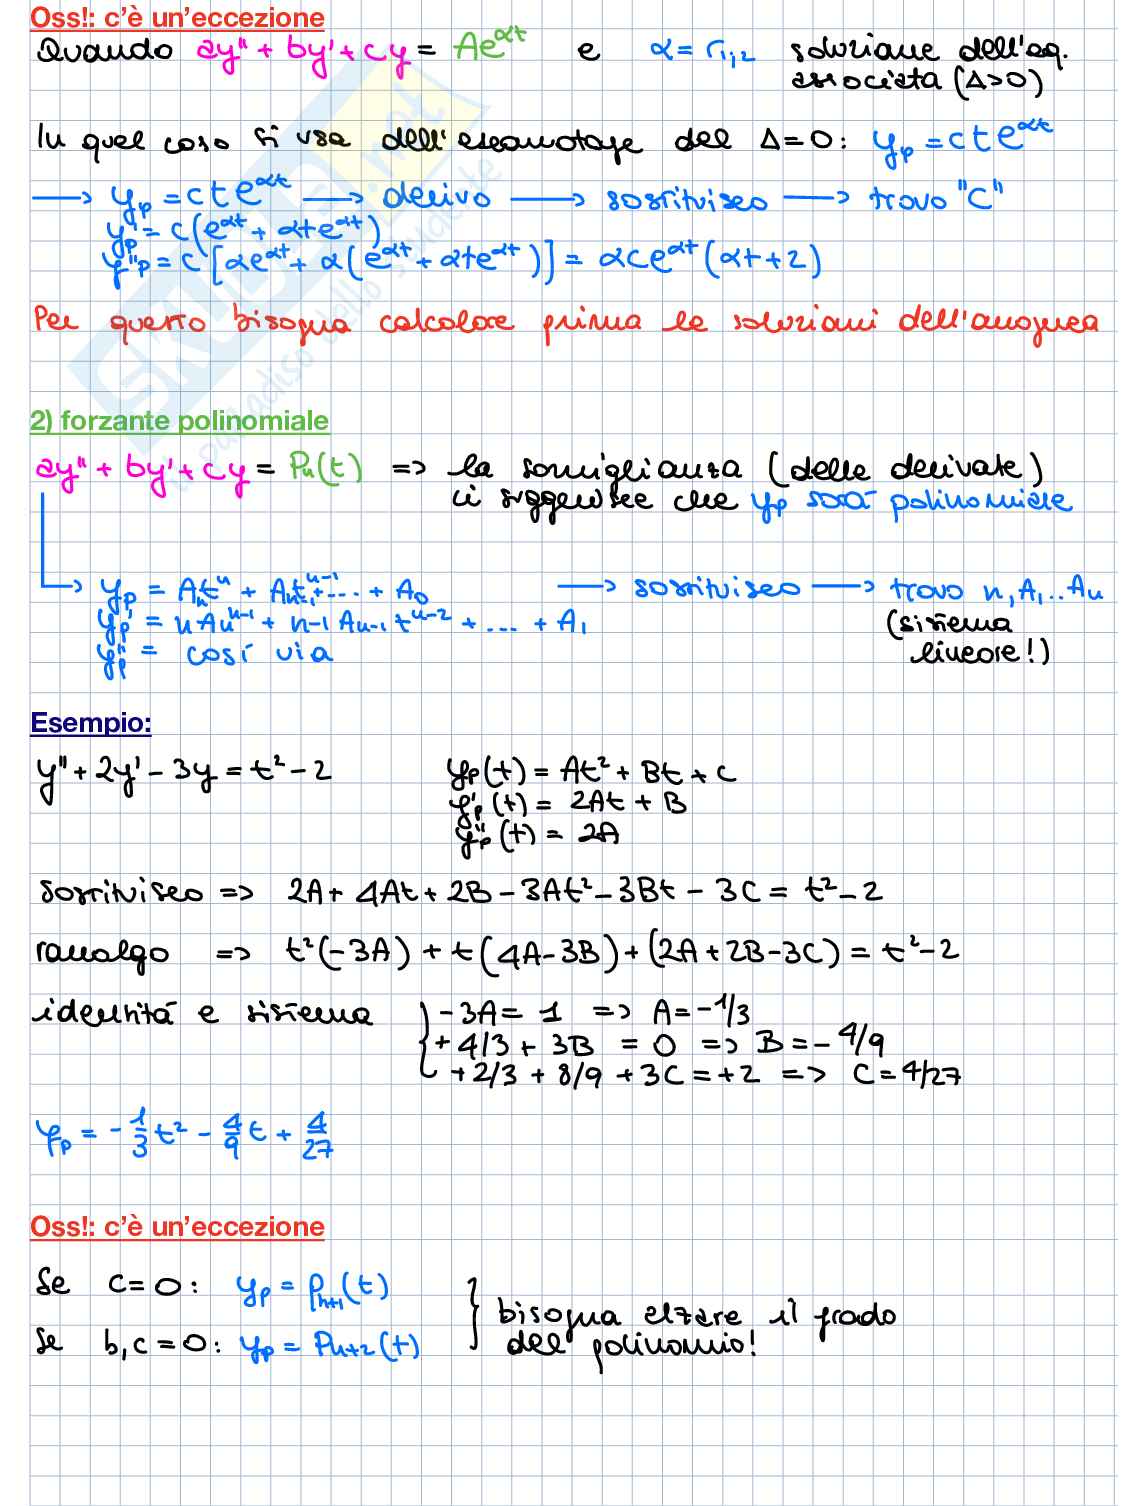 Oss!: c'è un'eccezione
Quando ay" + by' + cy = Ae^αt e α = r1,2 soluzione dell'eq.
associata (Δ>0)
In quel caso si usa dell'escamotage del Δ=0: yp = cte^αt
→ yp = cte^αt → derivo → sostituisco → trovo "C"
y'p = c(e^αt + αte^αt)
y"p = c[αe^αt + α(e^αt + αte^αt)] = αce^αt(αt+2)
Per questo bisogna calcolare prima le soluzioni dell'omognea
2) forzante polinomiale
ay" + by' + cy = Pn(t) => la somiglianza (delle derivate)
ci suggerisce che yp sarà polinomiale
→ yp = Ant^n + An-1t^n-1 + ... + A0 → sostituisco → trovo n, A1..An
y'p = nAn^n-1 + n-1 An-1 t^n-2 + ... + A1 (sistema
y"p = così via lineare!)
Esempio:
y" + 2y' - 3y = t² - 2 yp(t) = At² + Bt + C
y'p(t) = 2At + B
y"p(t) = 2A
sostituisco => 2A + 4At + 2B - 3At² - 3Bt - 3C = t² - 2
raccolgo => t²(-3A) + t(4A-3B) + (2A+2B-3C) = t² - 2
identità e sistema { -3A = 1 => A = -1/3
+ 4/3 + 3B = 0 => B = - 4/9
+2/3 + 8/9 + 3C = +2 => C = 4/27
yp = - 1/3 t² - 4/9 t + 4/27
Oss!: c'è un'eccezione
Se c=0: yp = Pn+1(t) } bisogna alzare il grado
Se b,c=0: yp = Pn+2(t) del polinomio!